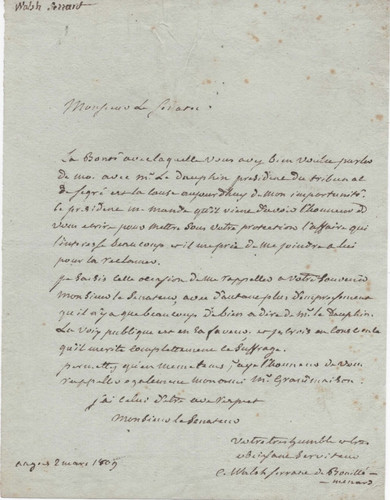 Walsh Serrant
Monsieur Le Senateur
La Bonté avec laquelle vous avez bien voulu parler
de moi avec mr Le Dauphin president du tribunal
de Segré est la cause aujourdhuy de mon importunité
le president me mande qu'il vient d'avoir l'honneur de
vous écrire pour mettre sous votre protection l'affaire qui
l'interesse beaucoup et il me prie de me joindre a lui
pour la reclamer.
je saisis cette occasion de me rappeller a votre souvenir
Monsieur le Senateur, avec d'autant plus d'empressement
qu'il n'y a que beaucoup de bien a dire de mr le Dauphin.
La voix publique est en sa faveur et je crois en
qu'il merite complettement le suffrage.
permettez qu'en meme tems j'aye l'honneur de vous
rappeller egalement mon ami Mr Grandmaison.
j'ai celui d'etre avec respect
Monsieur le Senateur
votre tres humble et tres
obeissant serviteur
C. Walsh Serrant de
angers 2 mars 1809